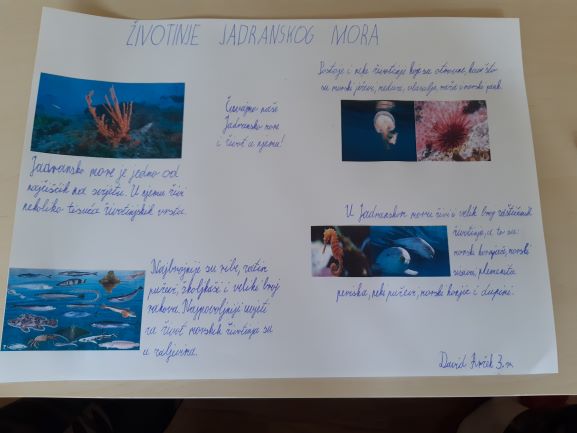 ŽIVOTINJE JADRANSKOG MORA
Jadransko more je jedno od
najčišćih na svijetu. U njemu živi
nekoliko tisuća životinjskih vrsta.
Najbrojnije su ribe, zatim
puževi, školjkaši i veliki broj
rakova. Najpovoljniji uvjeti
za život morskih životinja su
u zaljevima.
Čuvajmo naše
Jadransko more
i život u njemu!
Postoje i neke životinje koje su otrovne, kao što
su morski ježevi, meduze, vlasulja, raža i morski pauk.
U Jadranskom moru živi velik broj zaštićenih
životinja, a to su:
morske kornjače, morski
plemenita
periska, neki puževi, morski konjic i dupini.
David 3.r.